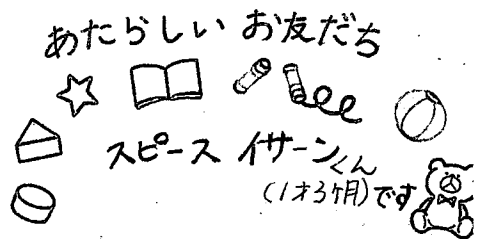 あたらしい お友だち
スピース イサーンくん
(1才3ヶ月)です